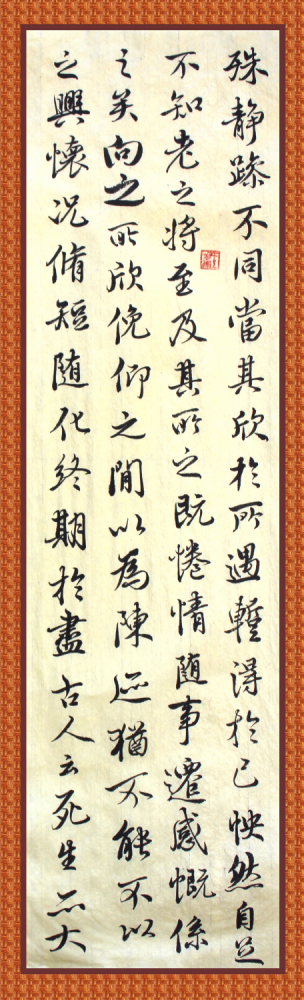 殊静躁不同當其欣於所遇蹔得於己怏然自足
不知老之将至及其所之既惓情随事遷感慨係
之矣向之所欣俛仰之閒以為陳迹猶不能不以
之興懷況脩短随化終期於盡古人云死生亦大